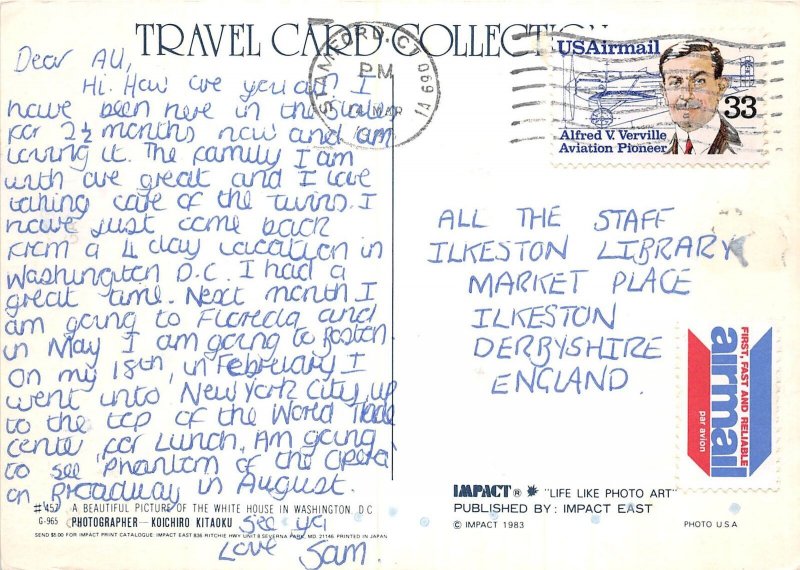 TRAVEL CARD COLLECTION
Dear All,
Hi. How are you all? I
have been here in the States
for 2½ months now and am
loving it. The family I am
with are great and I love
taking care of the twins. I
have just come back
from a 4 day vacation in
Washington D.C. I had a
great time. Next month I
am going to Florida and
in May I am going to Boston.
On my 18th, in February I
went into New York City, up
to the top of the World Trade
Center for Lunch. Am going
to see 'Phantom of the Opera'
on Broadway in August.
See ya
Love Sam.
#457 A BEAUTIFUL PICTURE OF THE WHITE HOUSE IN WASHINGTON D.C
G-965 PHOTOGRAPHER—KOICHIRO KITAOKU
SEND $5.00 FOR IMPACT PRINT CATALOGUE: IMPACT EAST 836 RITCHIE HWY UNIT 8 SEVERNA PARK, MD. 21146 PRINTED IN JAPAN
STAMFORD, CT
PM
MAR
USAirmail
33
Alfred V. Verville
Aviation Pioneer
ALL THE STAFF
ILKESTON LIBRARY
MARKET PLACE
ILKESTON
DERBYSHIRE
ENGLAND.
FIRST, FAST AND RELIABLE
airmail
par avion
IMPACT® "LIFE LIKE PHOTO ART"
PUBLISHED BY: IMPACT EAST
© IMPACT 1983 PHOTO U S A